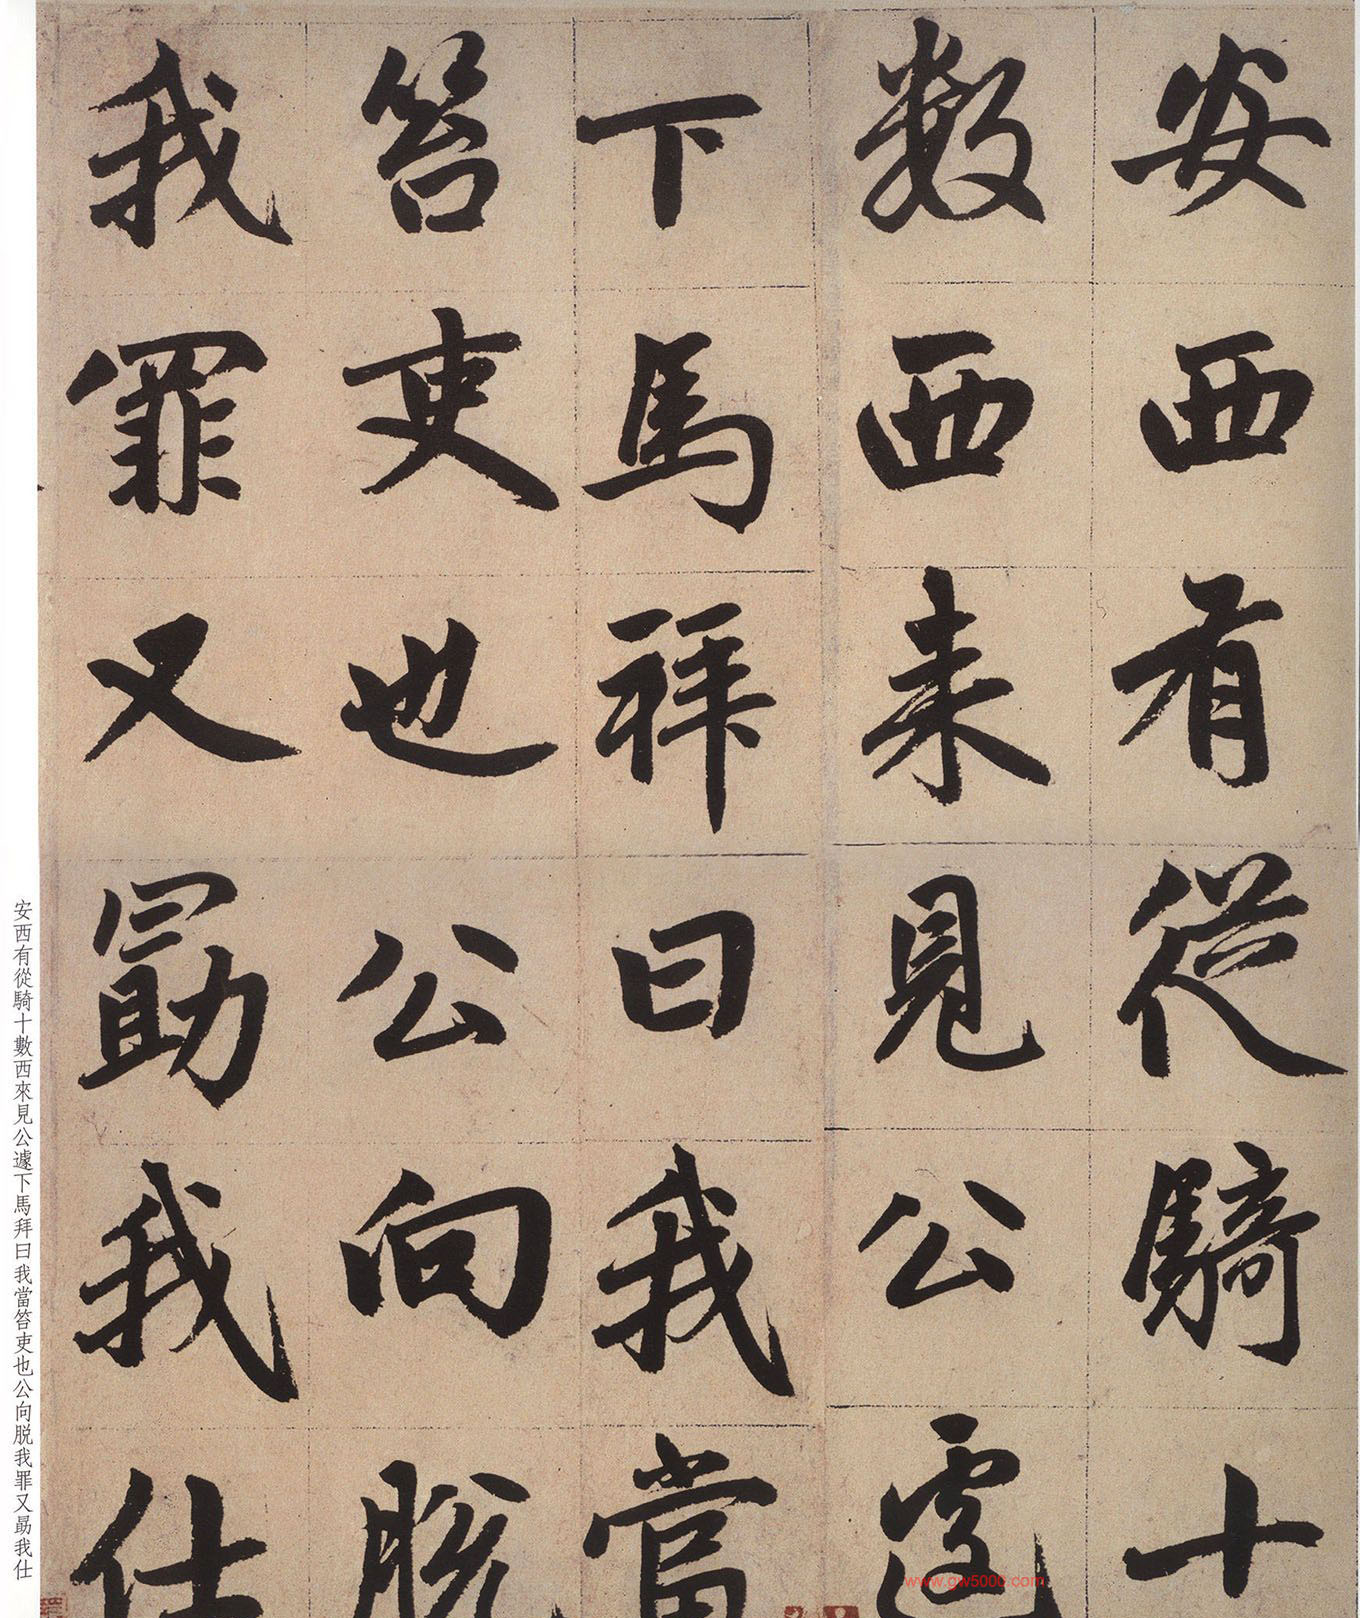 安西有從騎十
數西来見公遽
下馬拜曰我當
笞吏也公向脱
我罪又勗我仕
安西有從騎十數西來見公遽下馬拜曰我當笞吏也公向脱我罪又勗我仕
www.gw5000.com